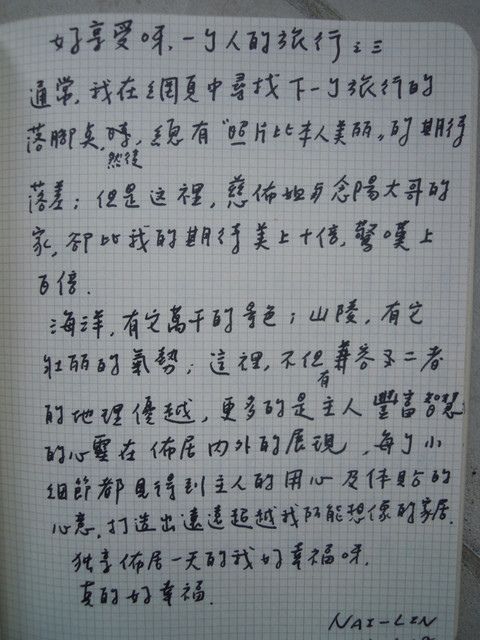 好享受呀，一个人的旅行之三
通常，我在網頁中尋找下一个旅行的
落腳点時，總有"照片比本人美丽"的期待
然後
落差；但是这裡，慈佈姐与念陽大哥的
家，卻比我的期待美上十倍，驚嘆上
百倍．
海洋，有它萬千的景色；山陵，有它
壯丽的氣勢；這裡，不但有兼容了二者
的地理優越，更多的是主人豐富智慧
的心靈在佈居内外的展現，每个小
細節都見得到主人的用心及体貼的
心意，打造出遠遠超越我所能想像的家居．
独享佈居一天的我好幸福呀．
真的好幸福．
NAI-LIN